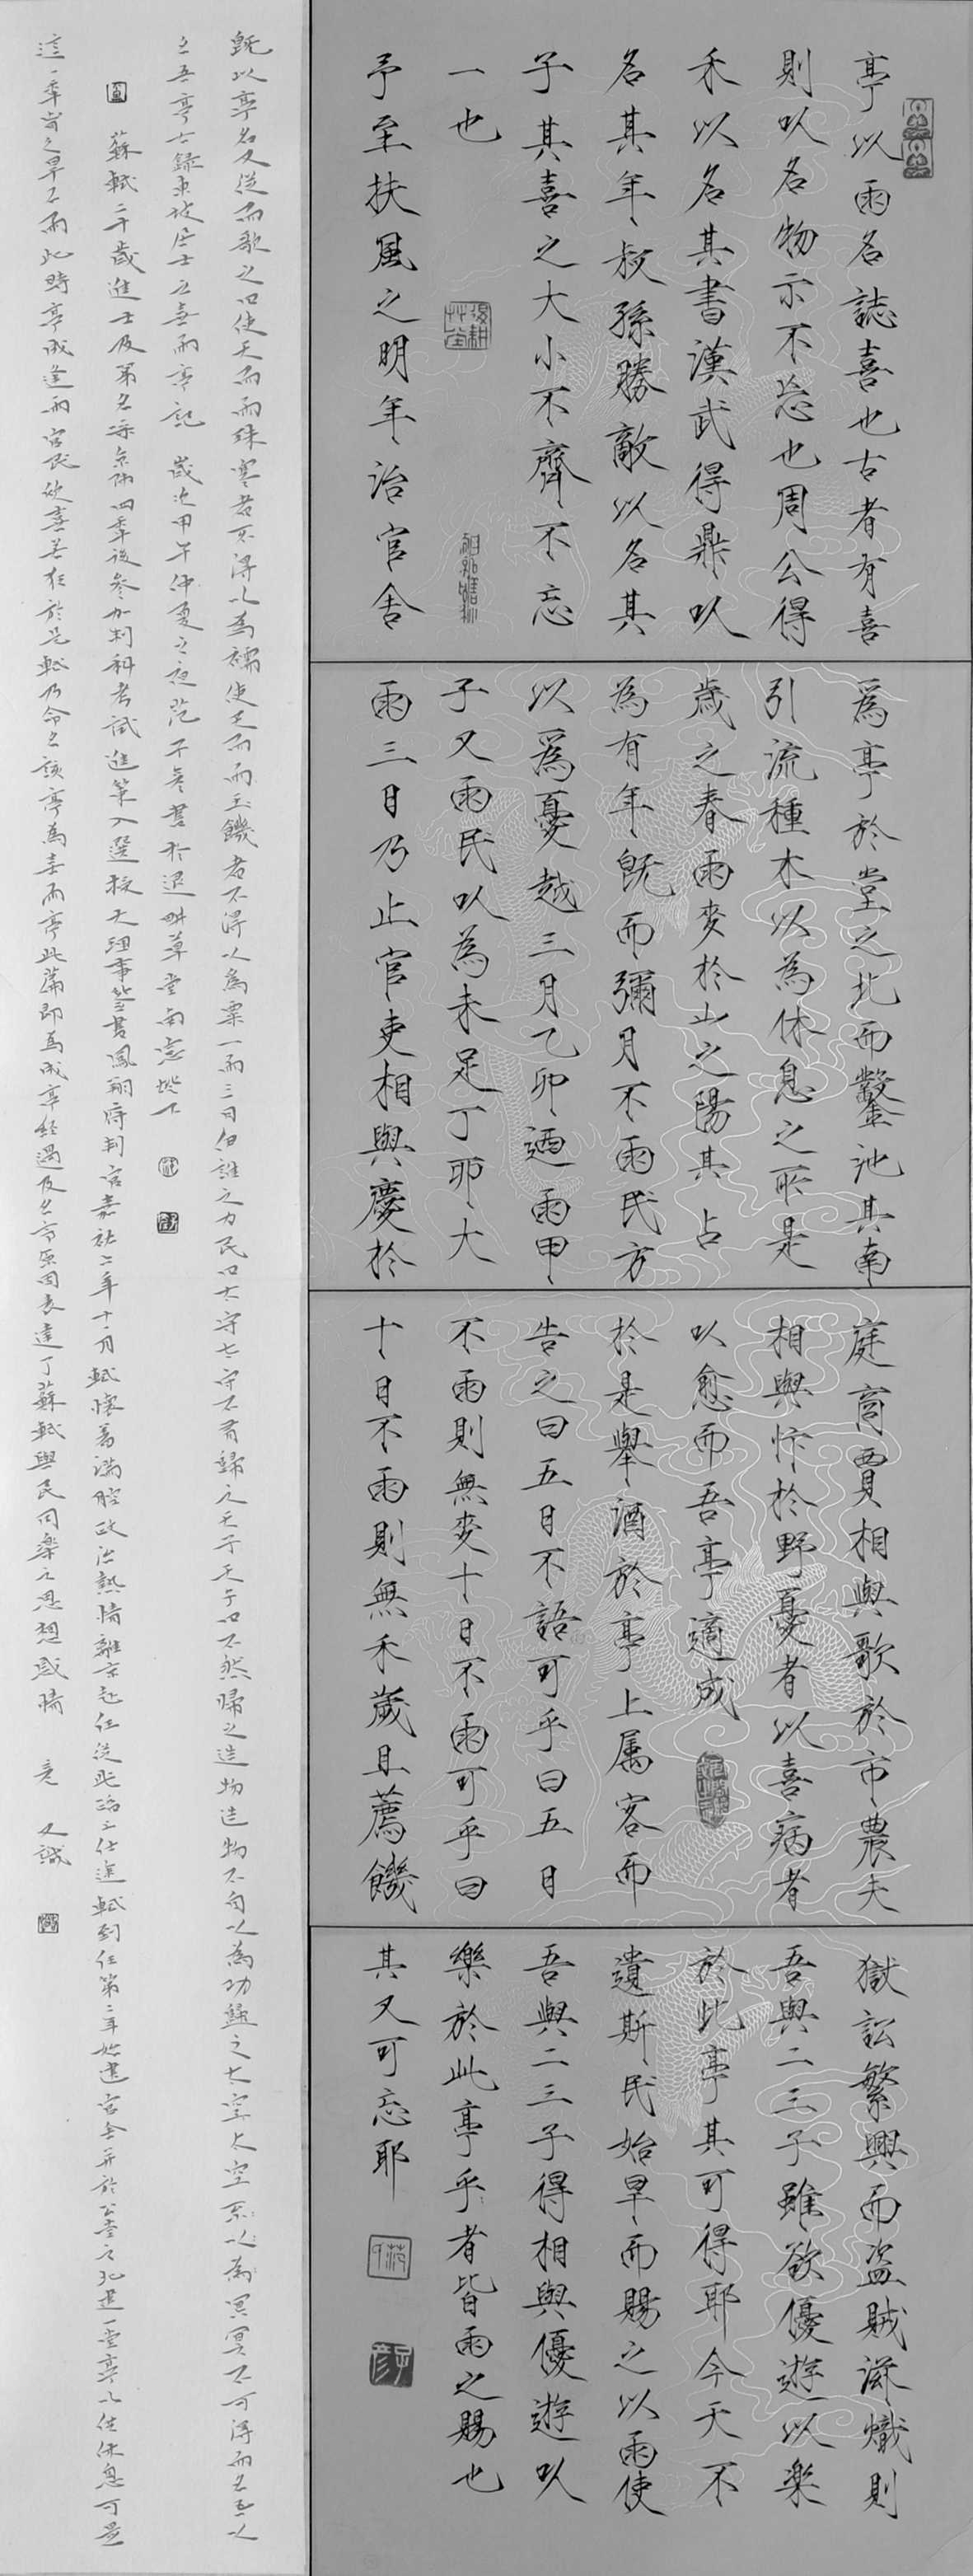 亭以雨名誌喜也古者有喜
則以名物示不忘也周公得
禾以名其書漢武得鼎以
名其年叔孫勝敵以名其
子其喜之大小不齊不忘
一也
予至扶風之明年治官舍
為亭於堂之北而鑿池其南
引流種木以為休息之所是
歲之春雨麥於山之陽其占
為有年既而彌月不雨民方
以為憂越三月乙卯迺雨甲
子又雨民以為未足丁卯大
雨三日乃止官吏相與慶於
庭商賈相與歌於市農夫
相與忭於野憂者以喜病者
以愈而吾亭適成
於是舉酒於亭上属客而
告之曰五日不語可乎曰五日
不雨則無麥十日不雨可乎曰
十日不雨則無禾歲且薦饑
獄訟繁興而盜賊滋熾則
吾與二三子雖欲優遊以樂
於此亭其可得耶今天不
遺斯民始旱而賜之以雨使
吾與二三子得相與優遊以
樂於此亭乎者皆雨之賜也
其又可忘耶
既以亭名又從而歌之曰使天而雨珠寒者不得以為襦使天而雨玉饑者不得以為粟一雨三日伊誰之力民曰太守太守不有歸之天子天子曰不然歸之造物造物不自以為功歸之太空太空以為冥冥不可得而名吾以
名吾亭古錄東坡居士之喜雨亭記 歲次甲午仲夏之夜范子彥書於退耕草堂南窗燈下
蘇軾二十歲進士及第名京師四年後參加制科考試進策入選授大理事簽書鳳翔府判官嘉祐二年十一月軾懷著滿腔政治熱情離京赴任從此踏上仕途軾到任第二年始建官舍并於公堂之北建一堂亭以住休息可是
這一年時之旱不雨此時亭成逢雨官民欣喜若狂於是軾乃命名該亭為喜雨亭此篇即為成亭經過及名亭原因表達了蘇軾與民同樂之思想感情 彥 又識